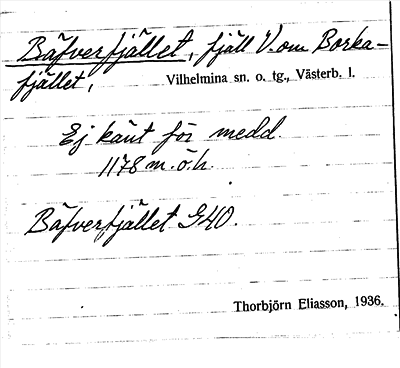 Bäfverfjället, fjäll V. om Borka-
fjället, Vilhelmina sn. o. tg., Västerb. l.
Ej känt för medd.
1178 m. ö. h.
Bäfverfjället GK0.
Thorbjörn Eliasson, 1936.